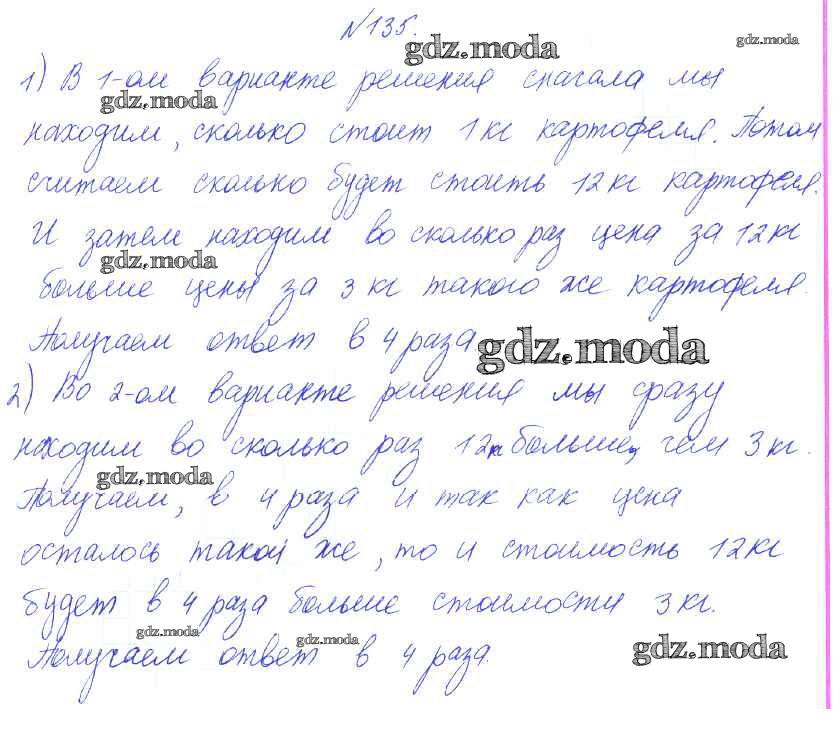 №135.
gdz.moda
gdz.moda
1) В 1-ом варианте решения сначала мы
gdz.moda
находим, сколько стоит 1кг картофеля. Потом
считаем сколько будет стоить 12кг картофеля.
И затем находим во сколько раз цена за 12кг
gdz.moda
больше цены за 3кг такого же картофеля.
Получаем ответ в 4 раза.
gdz.moda
2) Во 2-ом варианте решения мы сразу
находим во сколько раз 12 больше, чем 3кг.
gdz.moda
Получаем, в 4 раза и так как цена
осталось такой же, то и стоимость 12кг
будет в 4 раза больше стоимости 3кг.
gdz.moda
gdz.moda
gdz.moda
Получаем ответ в 4 раза.